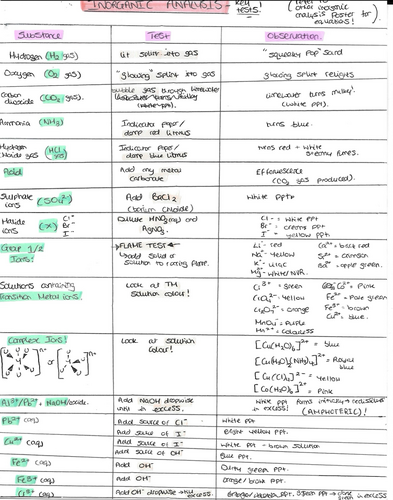 INORGANIC ANALYSIS - key tests!
(refer to other inorganic analysis poster for equations!)
Substance Test Observation
Hydrogen (H2 gas) Lit splint into gas "squeaky Pop" sound
Oxygen (O2 gas) "glowing" splint into gas glowing splint relights
Carbon dioxide (CO2 gas). bubble gas through limewater limewater turns milky. (white ppt).
Ammonia (NH3) Indicator paper/ damp red litmus turns blue.
Hydrogen Halide gas (HCl gas) Indicator paper/ damp blue litmus turns red + white steamy fumes.
Acid Add any metal carbonate Effervescence (CO2 gas produced).
Sulphate ions (SO4 2-) Add BaCl2 (barium chloride) White ppt
Halide ions (X-) Cl- Br- I- Dilute HNO3(aq) and AgNO3. Cl- : white ppt
Br- : cream ppt
I- : yellow ppt.
Group 1/2 Ions! →FLAME TEST←
↳add solid or solution to roaring flame.
Li+ red Ca2+ = brick red
Na+ yellow Sr2+ = crimson
K+ - lilac Ba2+ apple green.
Mg2+ White/N/R.
Solutions containing Transition Metal ions! Look at TM solution colour!
Cr3+ = green Co2+ = Pink
CrO4 2- = yellow Fe2+ = Pale green
Cr2O7 2- = orange Fe3+ = brown
MnO4- = Purple Cu2+ = blue.
Mn2+ = Colourless
Complex Ions! Look at solution colour!
[Cu(H2O)6]2+ = blue
[Cu(H2O)2(NH3)4]2+ = Royal blue
[Cu(Cl)4]2- = yellow
[Co(H2O)6]2+ = Pink
Al3+/Pb2+ + NaOH Add NaOH dropwise until in excess. White ppt forms initially + redissolves in excess! (AMPHOTERIC)!
Pb2+ (aq) Add source of Cl- White ppt
Add source of I- Bright yellow ppt.
Cu2+ (aq) Add source of I- White ppt - brown solution
Add source of OH- Blue ppt.
Fe2+ (aq) Add OH- Dirty green ppt.
Fe3+ (aq) Add OH- orange/brown ppt.
Cr3+ (aq) Add OH- dropwise → till excess